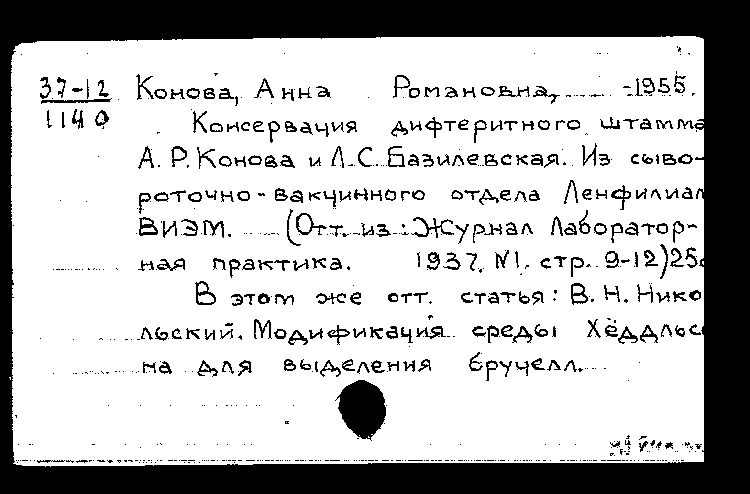 37-12 Конова, Анна Романовна, -1955.
1140
Консервация дифтеритного штамма
А. Р. Конова и Л. С. Базилевская. Из сыво-
роточно-вакцинного отдела Ленфилиал
ВИЭМ. (Отт. из: Журнал Лаборатор-
ная практика. 1937. №1. стр. 9-12) 25с
В этом же отт. статья: В. Н. Нико
льский. Модификация среды Хёддльсо
на для выделения бруцелл.